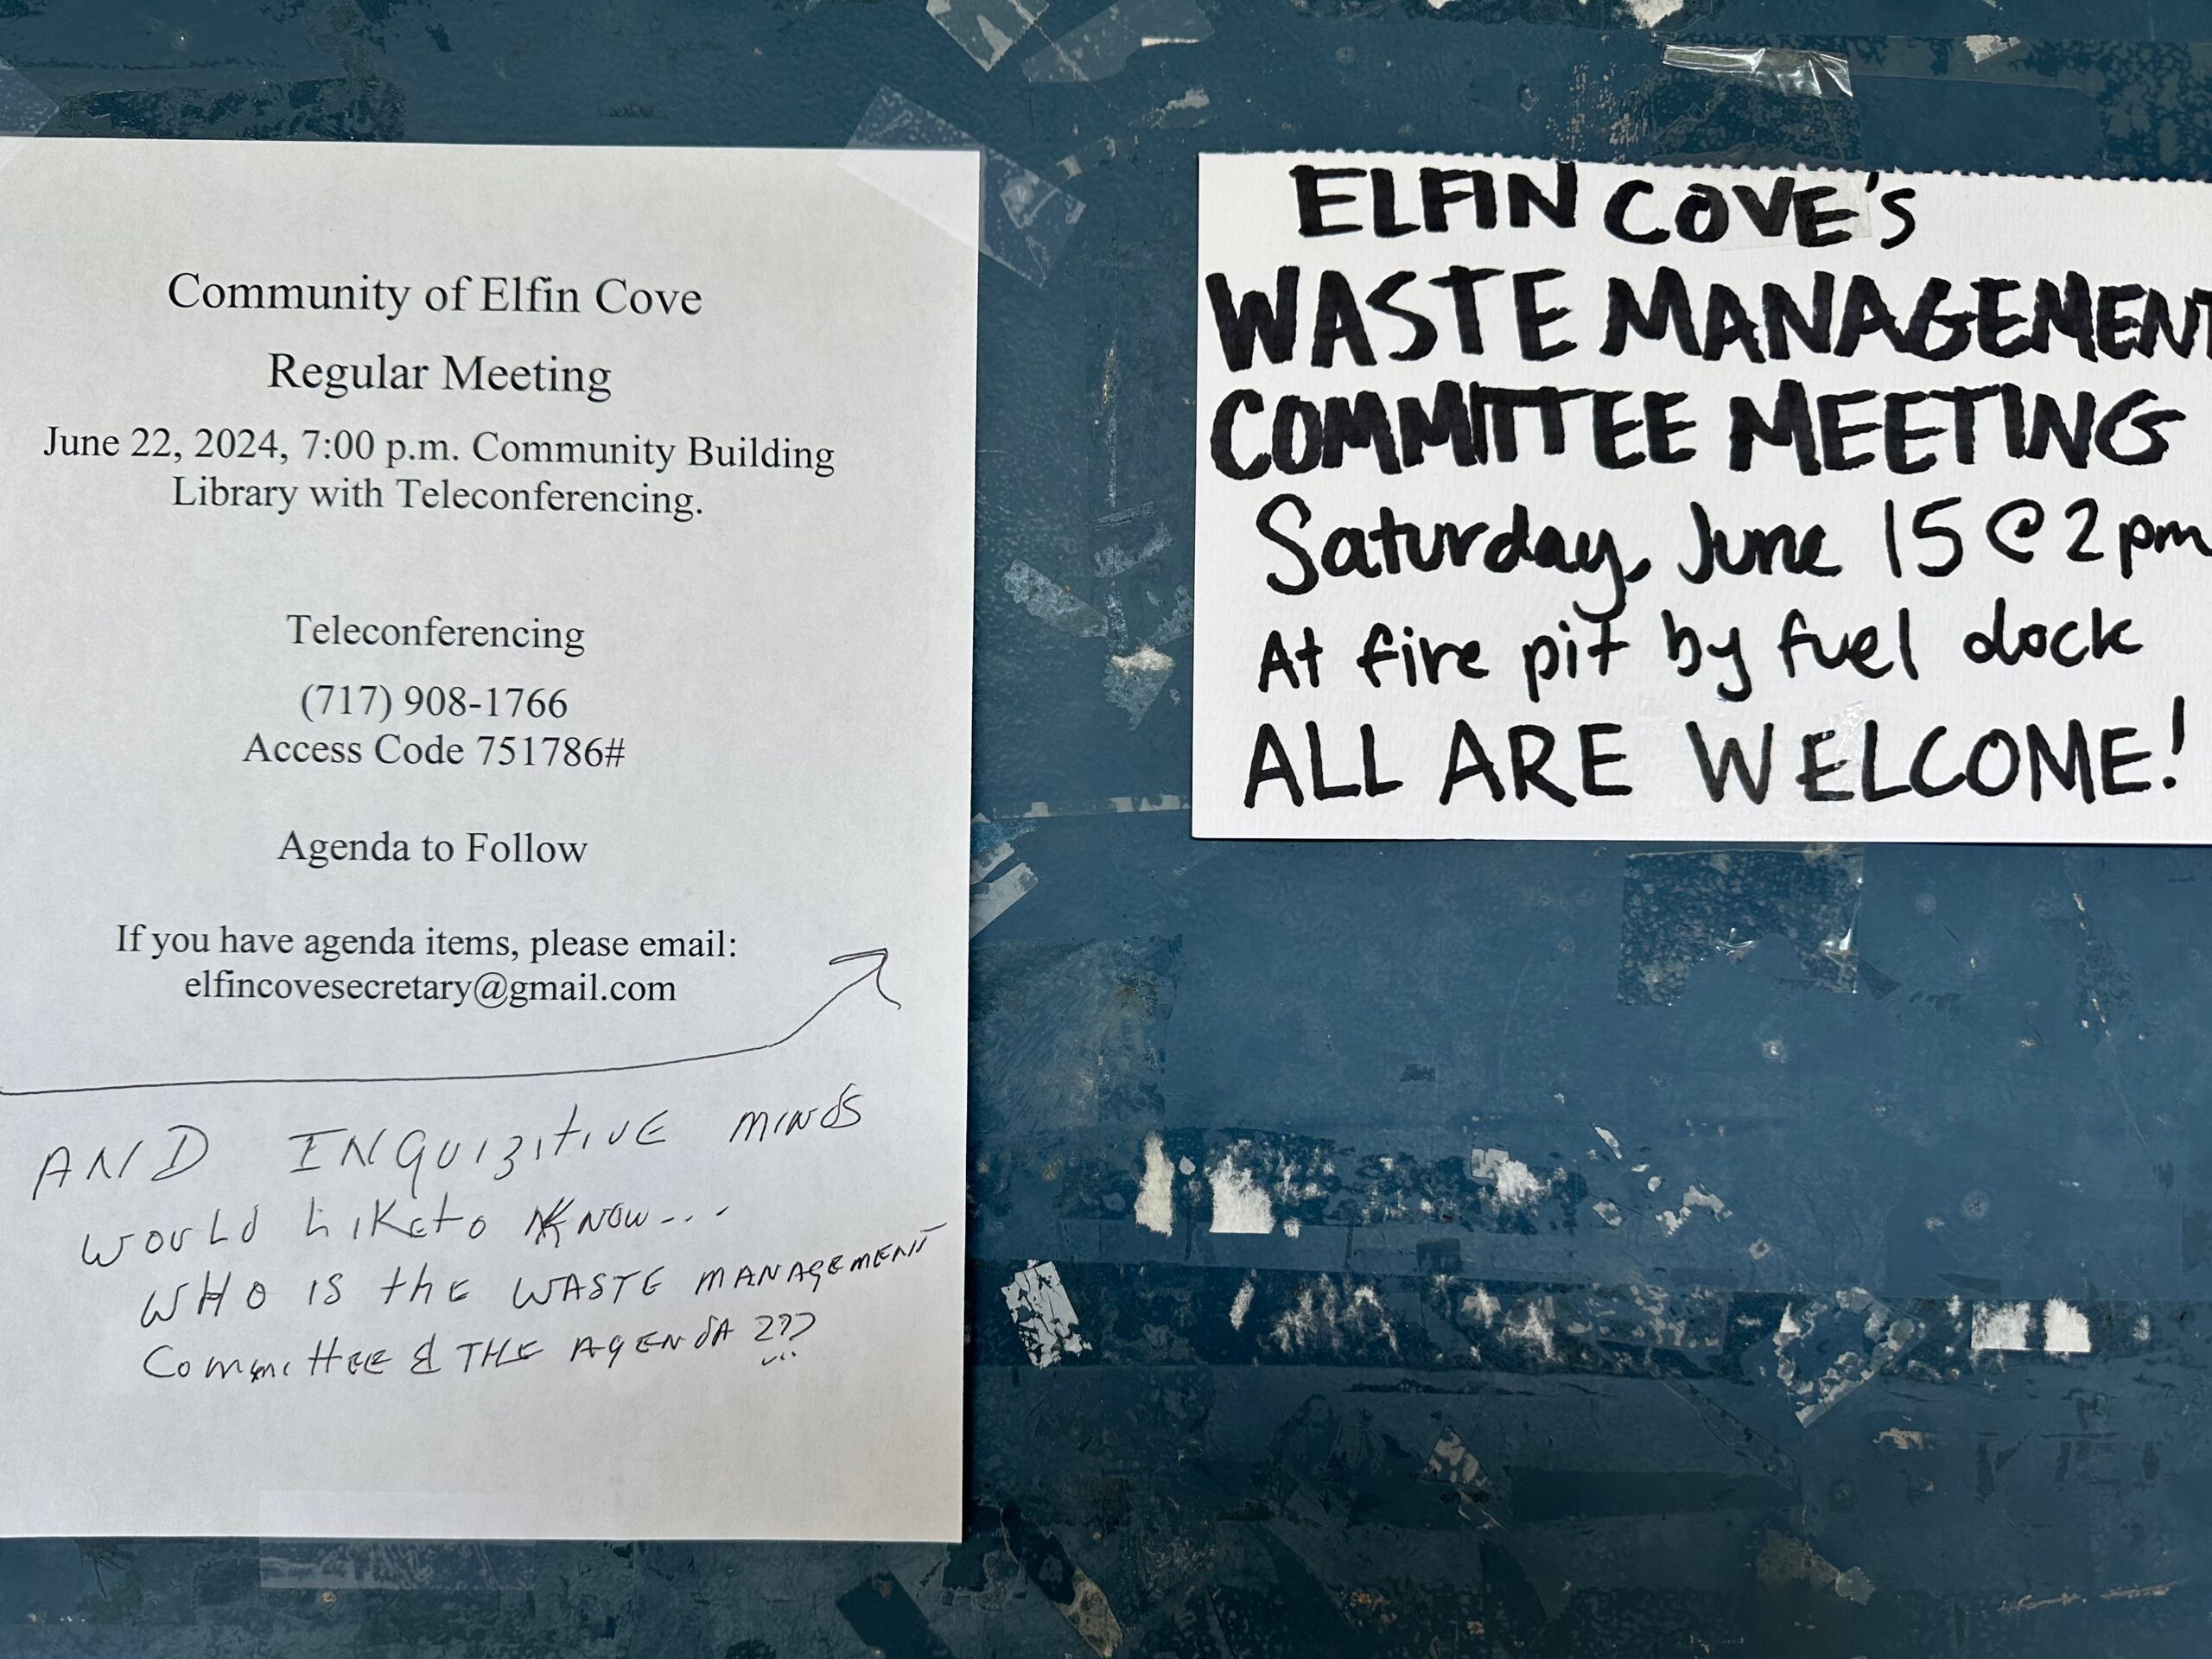 Community of Elfin Cove
Regular Meeting
June 22, 2024, 7:00 p.m. Community Building
Library with Teleconferencing.
Teleconferencing
(717) 908-1766
Access Code 751786#
Agenda to Follow
If you have agenda items, please email:
elfincovesecretary@gmail.com
AND INQUIZITIVE MINDS
WOULD LIKE to KNOW...
WHO IS thE WASTE MANAGEMENT
CommittEE & THE AGENDA ???
ELFIN COVE'S
WASTE MANAGEMENT
COMMITTEE MEETING
Saturday, June 15 @ 2pm
At fire pit by fuel dock
ALL ARE WELCOME!